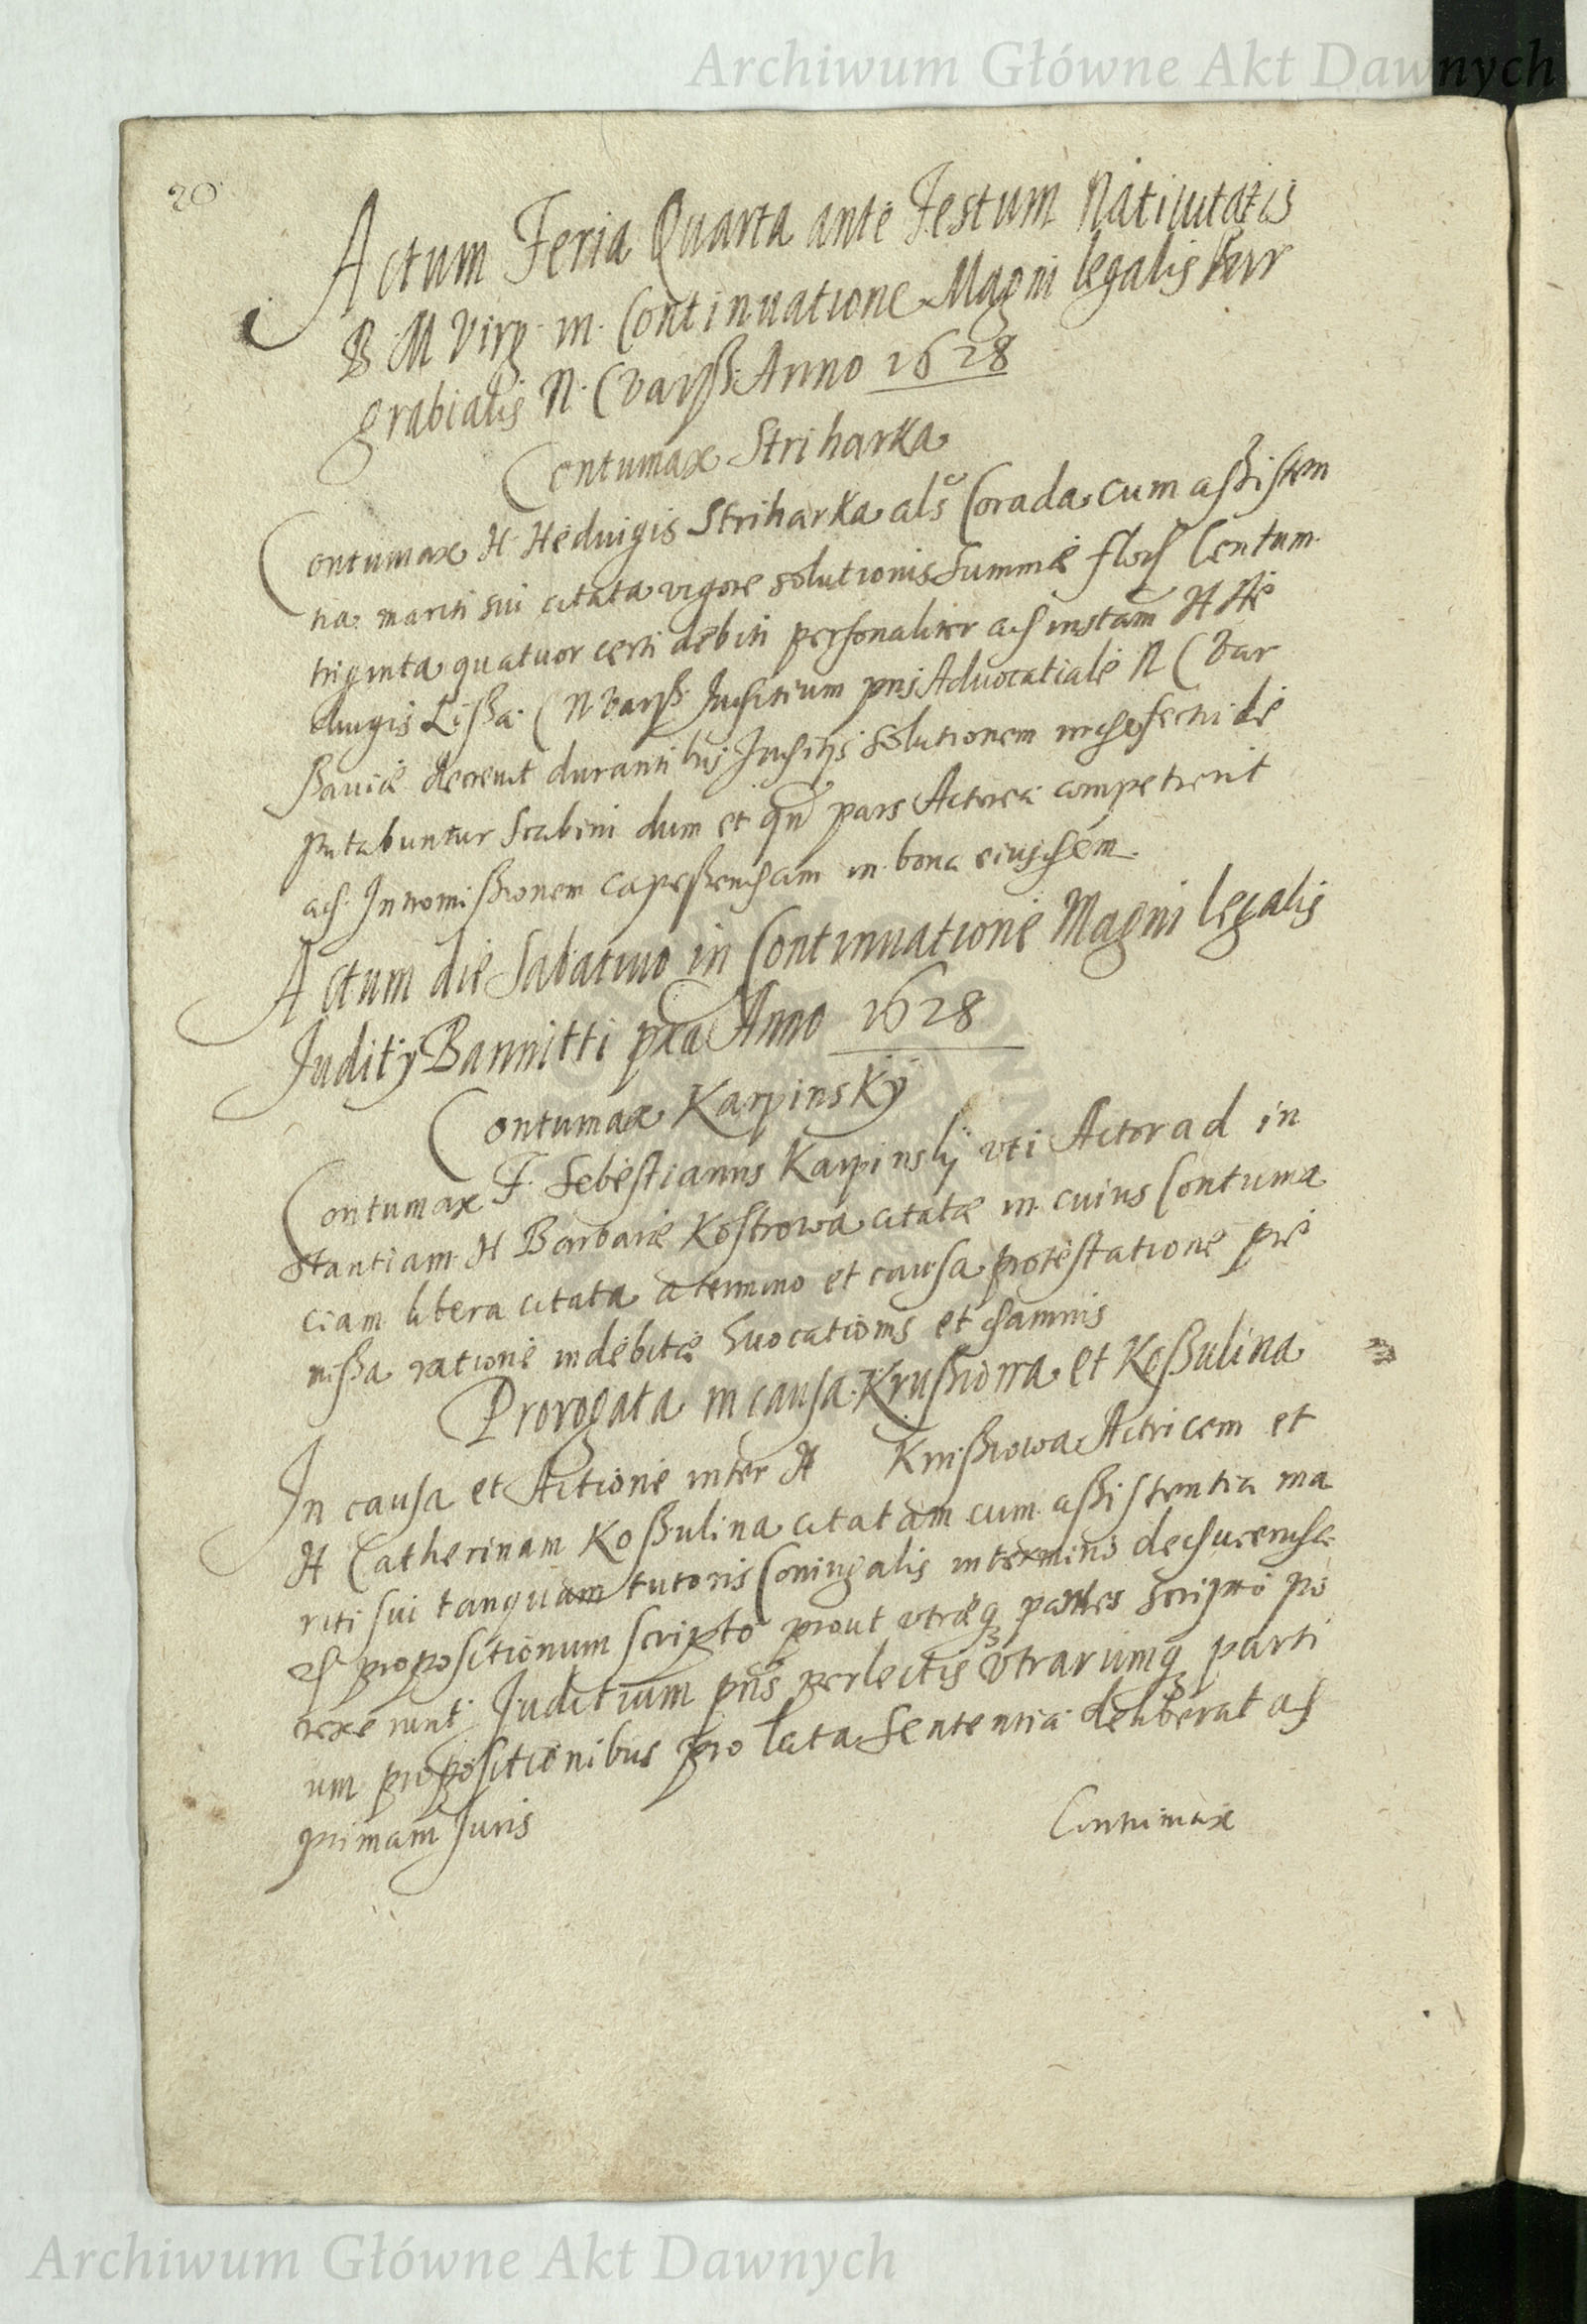 Archiwum Główne Akt Dawnych
20
Actum Feria Quarta ante Festum Natiuitatis
B. M Virg. in Continuatione Magni legalis
grabialis N. C Varß. Anno 1628
Contumax Striharka
Contumax H. Heduigis Striharka als Corada cum aßisten
tia mariti sui citata vigore solutionis Summæ floꝛ Centum
triginta quatuor certi debiti personaliter ad instam H He
duigis Lißa C N Varß. Juditium pns Aduocatiale N C Var
ßauiæ decreuit durantibus Judicijs solutionem
putabuntur Scabini dum et qn pars Actorea competierit
ad Intromißionem capeßendam in bona eiusdem.
Actum die Sabatiuo in Continuatione Magni legalis
Juditij Bannitti pxa Anno 1628
Contumax Karpinsky
Contumax F. Sebestianus Karpinsky vti Actor ad in
stantiam H Barbaræ Kostrowa citatæ in cuius Contuma
ciam libera citata a termino et causa protestatione præ
mißa ratione indebitæ Euocationis et damnis
Prorogata in causa Krußiowa et Koßulina
In causa et Actione inter H Krußiowa Actricem et
H Catherinam Koßulina citatam cum aßistentia ma
riti sui tanquam tutoris Coniugalis in termino
propositionum scripto prout vtræq partes scripto po
rexerunt Juditium pns perlectis vtrarumq parti
um propositionibus pro lata Sententia deliberat ad
primam Juris
Contumax
Archiwum Główne Akt Dawnych